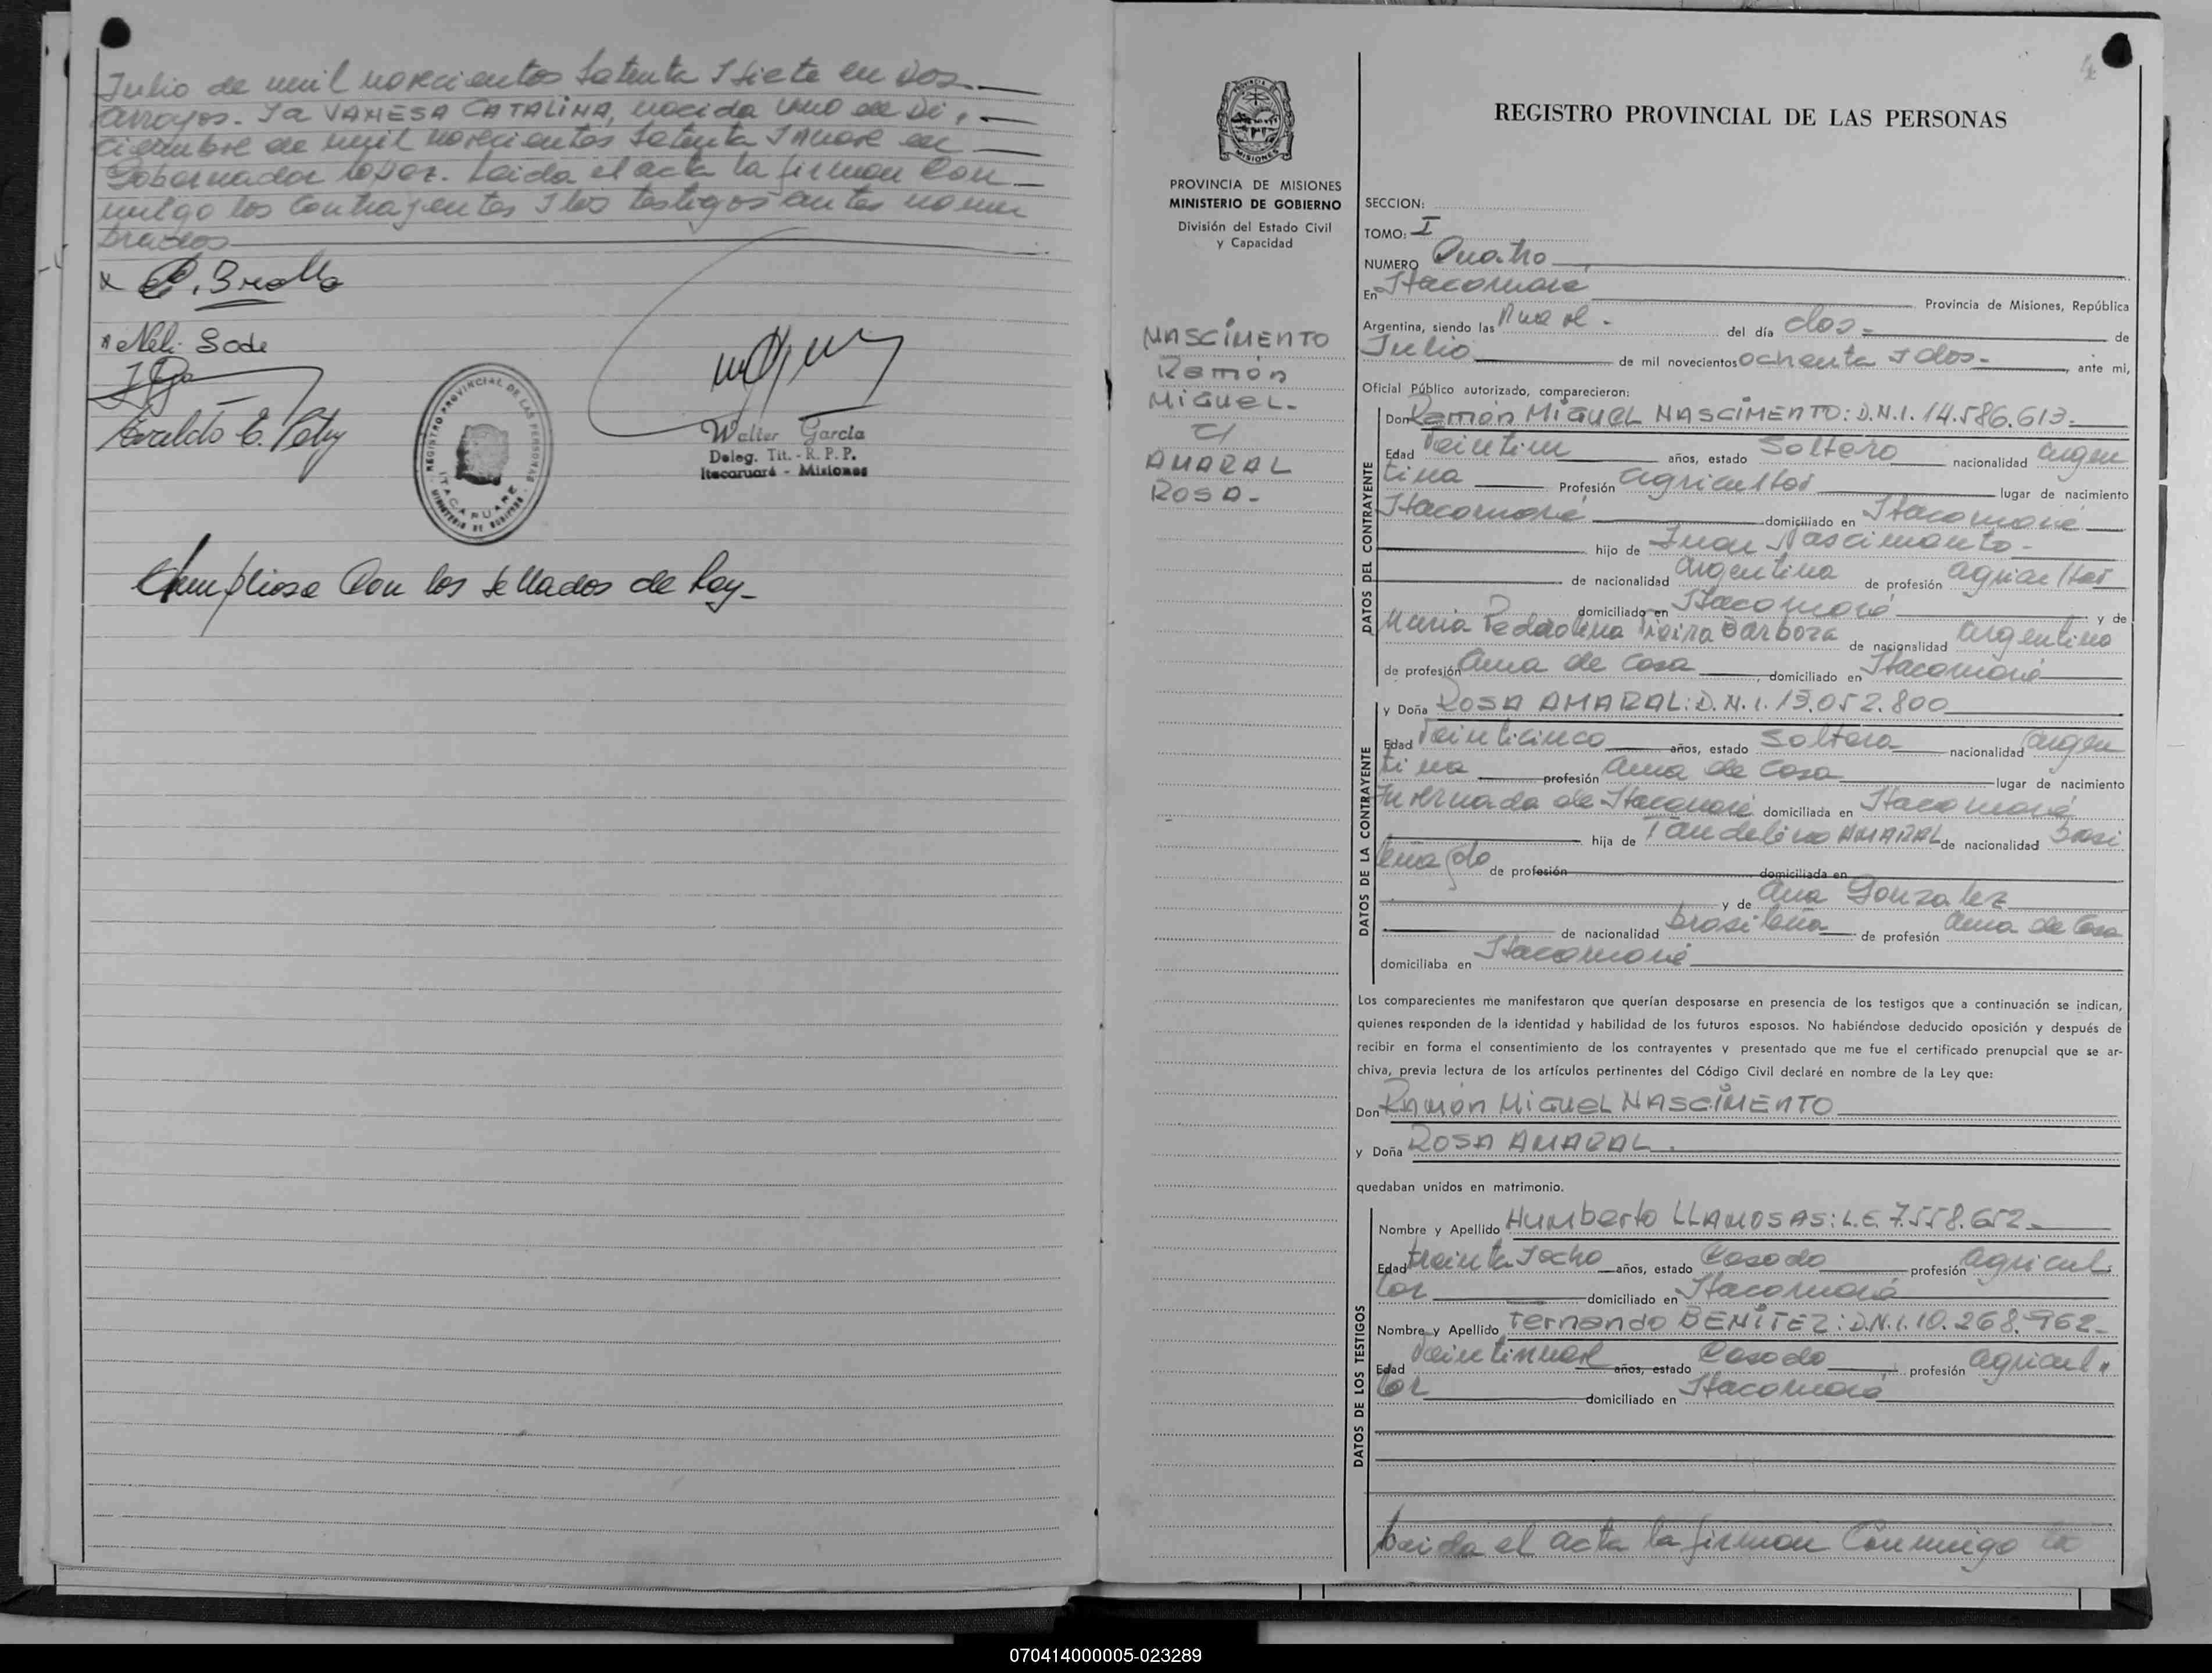 Julio de mil novecientos setenta y siete en Dos
Arroyos. Ya VANESA CATALINA, nacida uno de Di,
ciembre de mil novecientos setenta y nueve en
Gobernador López. Leida el acta la firman con
migo los contrayentes y los testigos antes nom
brados
x
x Neli Sode
REGISTRO PROVINCIAL DE LAS PERSONAS
ITACARUARE
MINISTERIO DE GOBIERNO
Walter García
Deleg. Tit. - R. P. P.
Itacaruaré - Misiones
Cumpliose Con los sellados de Ley-
4
MISIONES
PROVINCIA DE MISIONES
MINISTERIO DE GOBIERNO
División del Estado Civil
y Capacidad
NASCIMENTO
Ramón
MIGUEL-
c/
AMARAL
ROSA-
REGISTRO PROVINCIAL DE LAS PERSONAS
SECCION:
TOMO: I
NUMERO Cuatro
En Itacaruaré Provincia de Misiones, República
Argentina, siendo las nueve - del día dos- de
Julio de mil novecientos ochenta y dos- , ante mi,
Oficial Público autorizado, comparecieron:
DATOS DEL CONTRAYENTE
Don Ramón MIGUEL NASCIMENTO: D.N.I. 14.586.613-
Edad veintiun años, estado Soltero nacionalidad argen
tina Profesión agricultor lugar de nacimiento
Itacaruaré domiciliado en Itacaruaré
hijo de Juan Nascimento-
de nacionalidad argentina de profesión agricultor
domiciliado en Itacaruaré y de
Maria Pedrolina Vieira Barboza de nacionalidad argentina
de profesión ama de casa , domiciliado en Itacaruaré
DATOS DE LA CONTRAYENTE
y Doña ROSA AMARAL: D.N.I. 13.052.800
Edad veinticinco años, estado Soltera nacionalidad argen
tina profesión ama de casa lugar de nacimiento
Invernada de Itacaruaré domiciliada en Itacaruaré
hija de AMARAL de nacionalidad brasi
leña de profesión domiciliada en
y de Ana Gonzalez
de nacionalidad brasileña de profesión ama de casa
domiciliaba en Itacaruaré
Los comparecientes me manifestaron que querían desposarse en presencia de los testigos que a continuación se indican,
quienes responden de la identidad y habilidad de los futuros esposos. No habiéndose deducido oposición y después de
recibir en forma el consentimiento de los contrayentes y presentado que me fue el certificado prenupcial que se ar-
chiva, previa lectura de los artículos pertinentes del Código Civil declaré en nombre de la Ley que:
Don Ramón MIGUEL NASCIMENTO
y Doña ROSA AMARAL.
quedaban unidos en matrimonio.
DATOS DE LOS TESTIGOS
Nombre y Apellido Humberto LLAMOSAS: L.E. 7.558.652-
Edad treinta y ocho años, estado Casado profesión agricul
tor domiciliado en Itacaruaré
Nombre y Apellido Fernando BENITEZ: D.N.I. 10.268.962-
Edad veintinueve años, estado Casado profesión agricul
tor domiciliado en Itacaruaré
Leida el acta la firman conmigo los
070414000005-023289